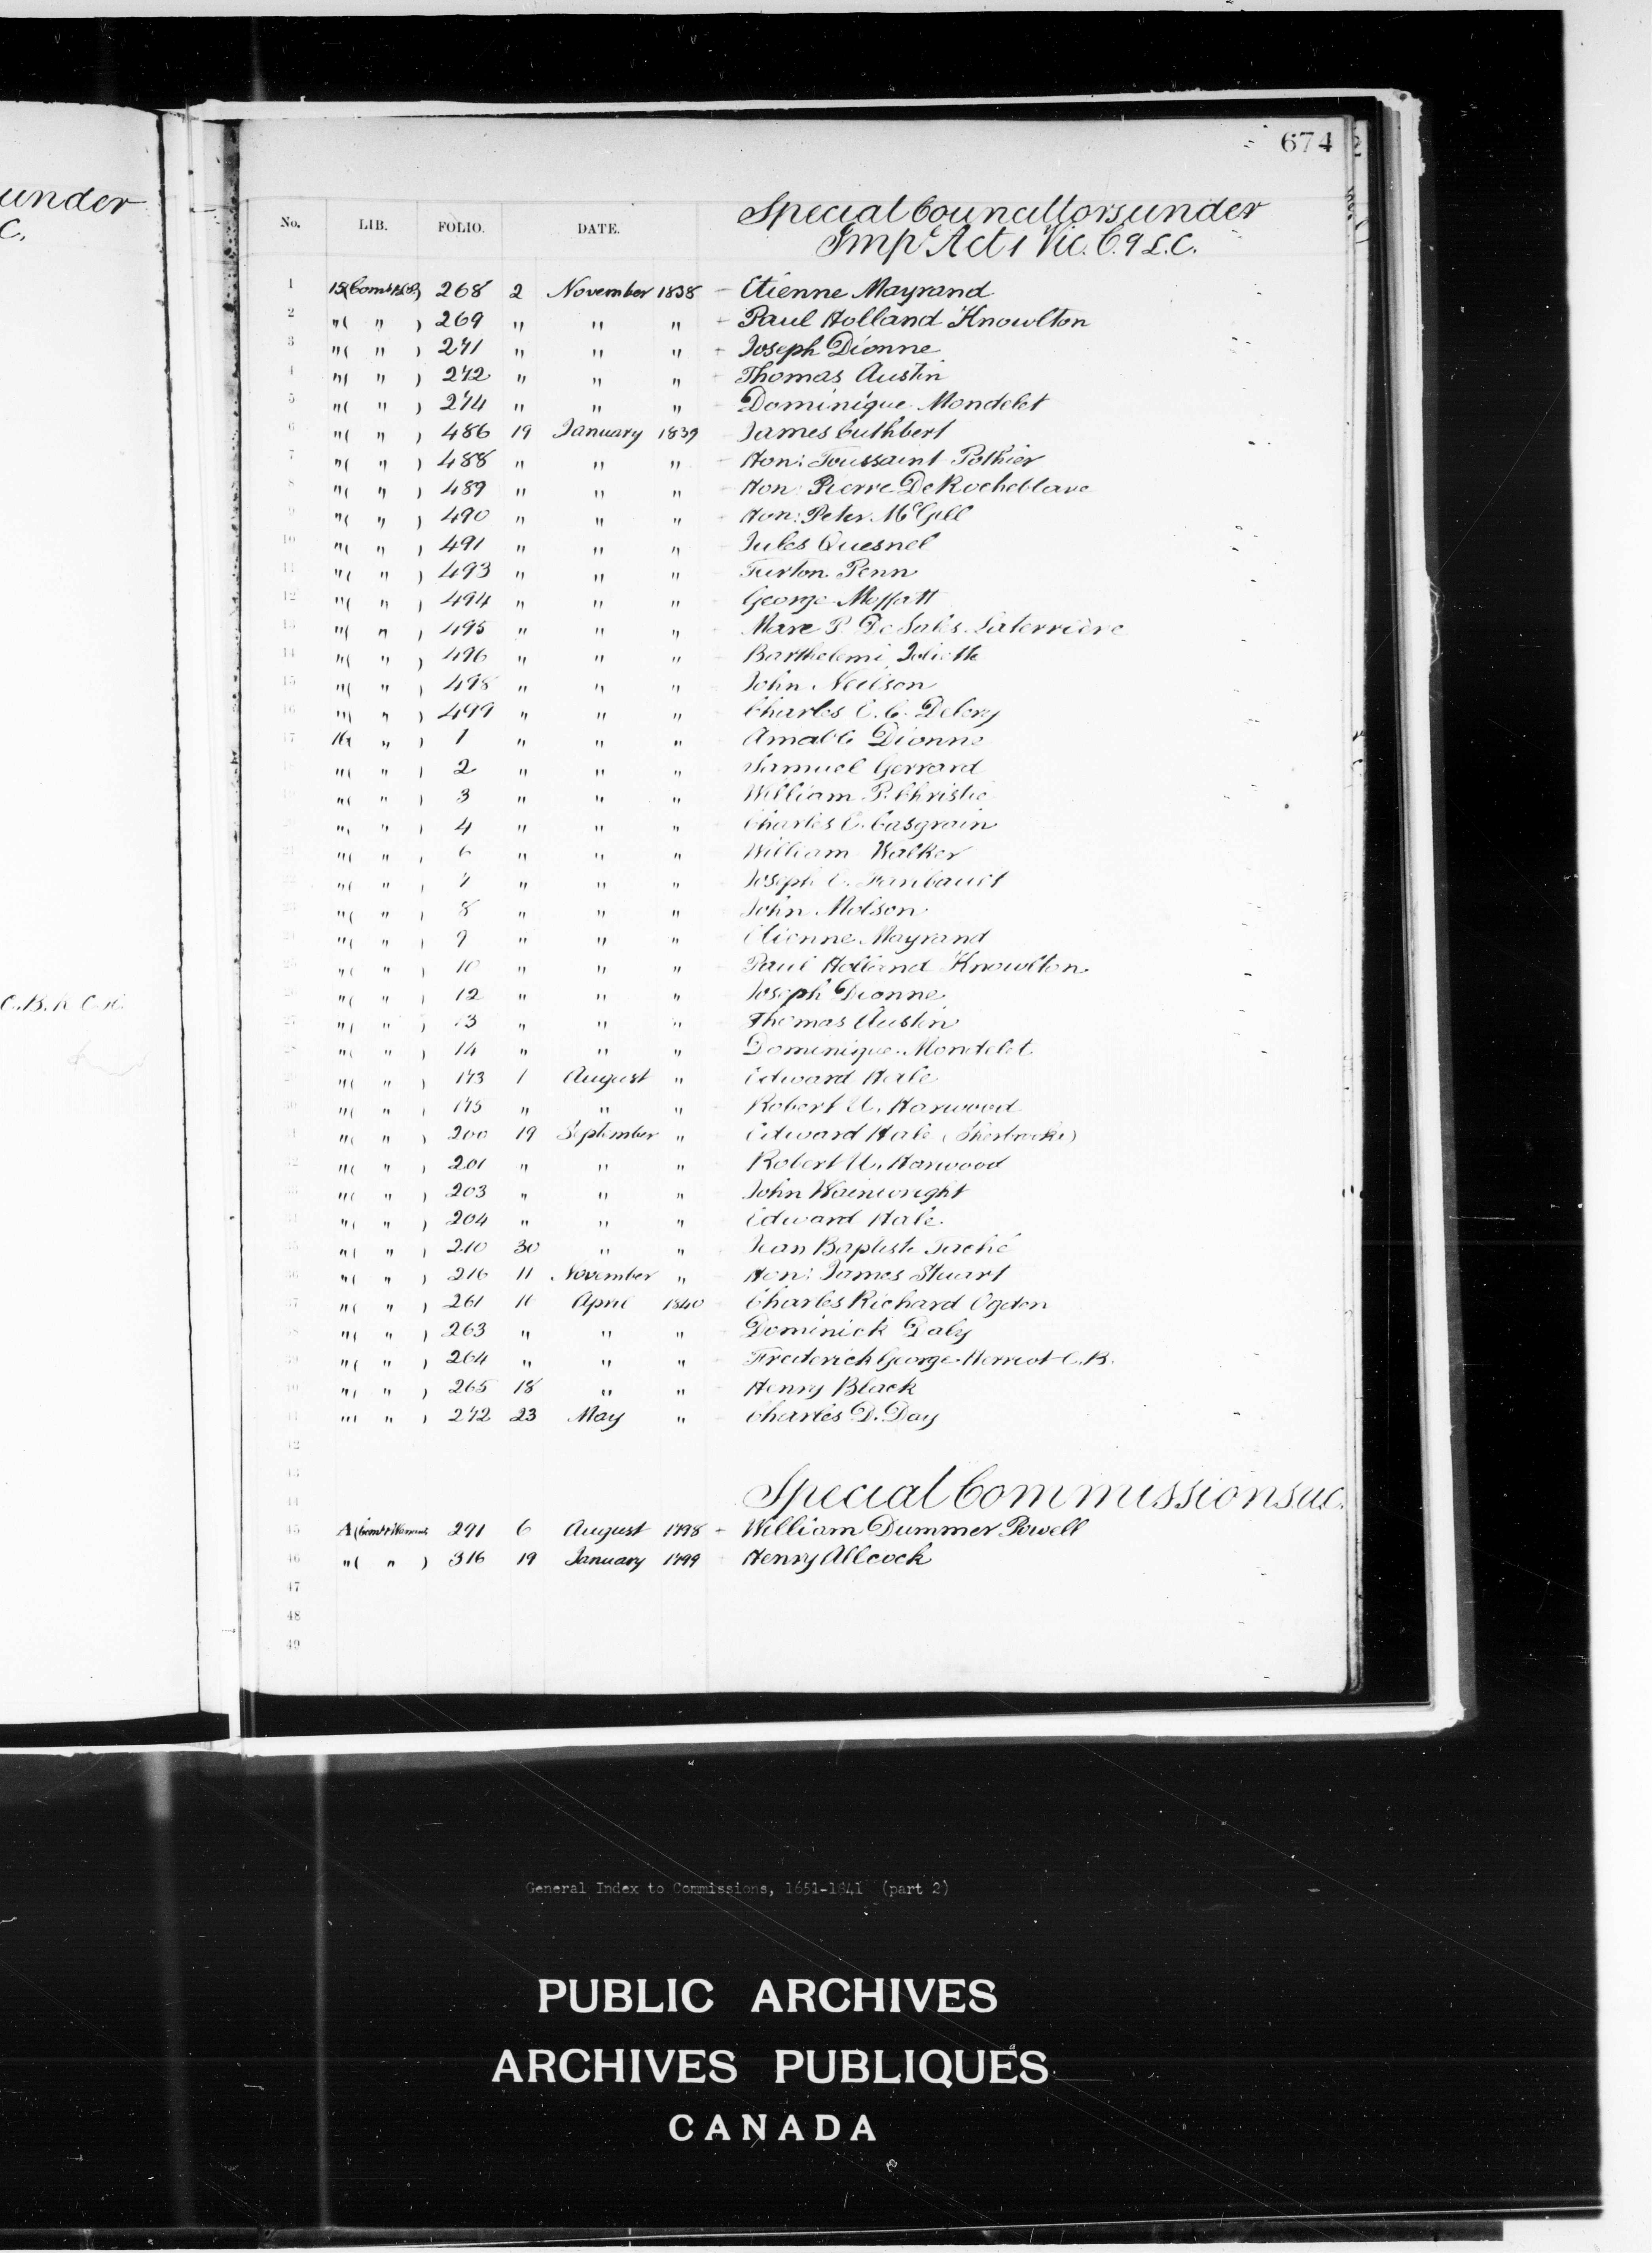 under
C.
C.B. & C &c.
674
No. LIB. FOLIO. DATE.
Special Councillors under
Impl Act 1 Vic. C. 9 L.C.
1 15 ( ) 268 2 November 1838 - Etienne Mayrand
2 "( " ) 269 " " " - Paul Holland Knowlton
3 "( " ) 271 " " " - Joseph Dionne
4 "( " ) 272 " " " - Thomas Austin
5 "( " ) 274 " " " - Dominique Mondelet
6 "( " ) 486 19 January 1839 - James Cuthbert
7 "( " ) 488 " " " - Hon: Toussaint Pothier
8 "( " ) 489 " " " - Hon: Pierre De Rocheblave
9 "( " ) 490 " " " - Hon: Peter McGill
10 "( " ) 491 " " " - Jules Quesnel
11 "( " ) 493 " " " - Turton Penn
12 "( " ) 494 " " " - George Moffatt
13 "( " ) 495 " " " - Marc P. De Sales Laterrière
14 "( " ) 496 " " " - Barthelemi Joliette
15 "( " ) 498 " " " - John Neilson
16 "( " ) 499 " " " - Charles E. C. Delery
17 16( " ) 1 " " " - Amable Dionne
18 "( " ) 2 " " " - Samuel Gerrard
19 "( " ) 3 " " " - William P. Christie
20 "( " ) 4 " " " - Charles E. Casgrain
21 "( " ) 6 " " " - William Walker
22 "( " ) 7 " " " - Joseph E. Faribault
23 "( " ) 8 " " " - John Molson
24 "( " ) 9 " " " - Etienne Mayrand
25 "( " ) 10 " " " - Paul Holland Knowlton
26 "( " ) 12 " " " - Joseph Dionne
27 "( " ) 13 " " " - Thomas Austin
28 "( " ) 14 " " " - Dominique Mondelet
29 "( " ) 173 1 August " - Edward Hale
30 "( " ) 175 " " " - Robert U. Harwood
31 "( " ) 200 19 September " - Edward Hale (Sherbrooke)
32 "( " ) 201 " " " - Robert U. Harwood
33 "( " ) 203 " " " - John Wainwright
34 "( " ) 204 " " " - Edward Hale
35 "( " ) 210 30 " " - Jean Baptiste Taché
36 "( " ) 216 11 November " - Hon: James Stuart
37 "( " ) 261 11 April 1840 - Charles Richard Ogden
38 "( " ) 263 " " " - Dominick Daly
39 "( " ) 264 " " " - Frederich George Herriot C.B.
40 "( " ) 265 18 " " - Henry Black
41 "( " ) 272 23 May " - Charles D. Day
42
43
44 Special Commissions U.C.
45 A ( 291 6 August 1798 - William Dummer Powell
46 "( " ) 316 19 January 1799 - Henry Allcock
47
48
49
General Index to Commissions, 1651-1841 (part 2)
PUBLIC ARCHIVES
ARCHIVES PUBLIQUES
CANADA